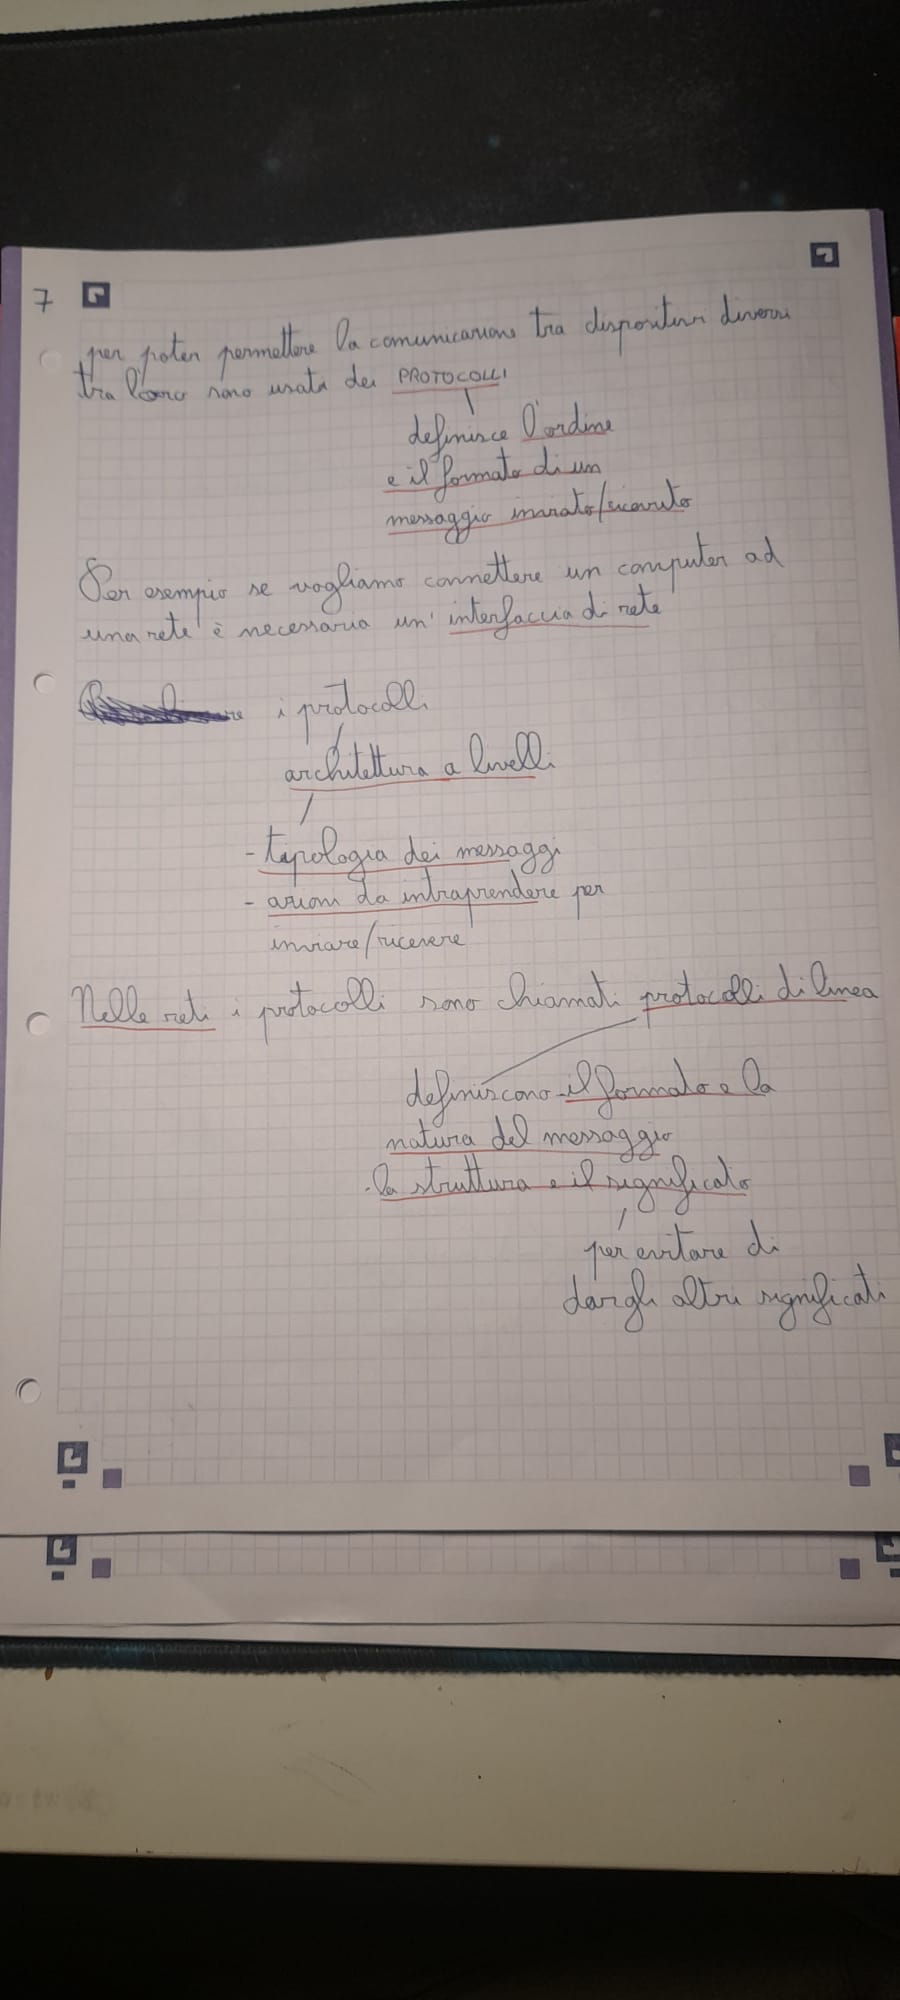 7
per poter permettere la comunicazione tra dispositivi diversi
tra loro sono usati dei PROTOCOLLI
definisce l'ordine
e il formato di un
messaggio inviato/ricevuto
Per esempio se vogliamo connettere un computer ad
una rete è necessaria un'interfaccia di rete
i protocolli
architettura a livelli
- tipologia dei messaggi
- azioni da intraprendere per
inviare/ricevere
Nelle reti i protocolli sono chiamati protocolli di linea
definiscono - il formato e la
natura del messaggio
- la struttura e il significato
per evitare di
dargli altri significati